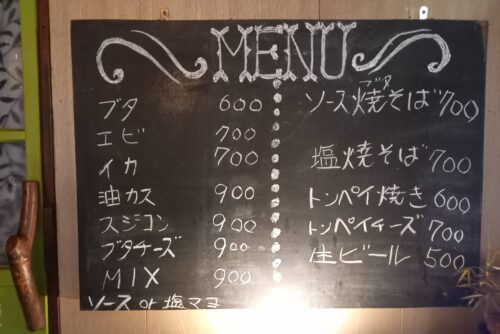 MENU
ブタ 600
エビ 700
イカ 700
油カス 900
スジコン 900
ブタチーズ 900
MIX 900
ソース or 塩マヨ
ブタ
ソース焼そば 700
塩焼そば 700
トンペイ焼き 600
トンペイチーズ 700
生ビール 500